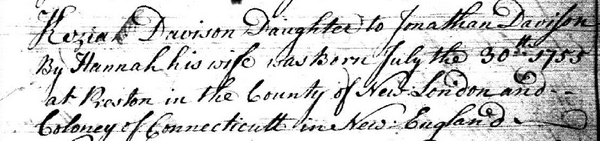 Kezia Davison Daughter to Jonathan Davison
By Hannah his wife was Born July the 30th 1755
at Preston in the County of New London and
Coloney of Connecticutt in New England